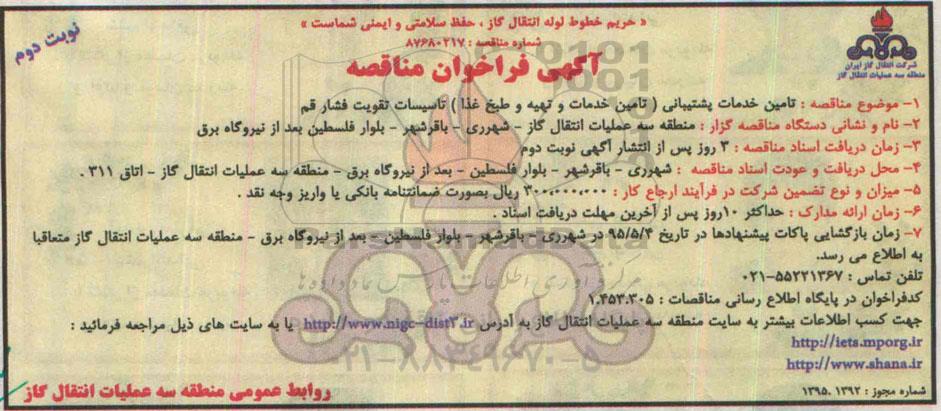 « حریم خطوط لوله انتقال گاز ، حفظ سلامتی و ایمنی شماست »
نوبت دوم
شماره مناقصه : ۸۷۶۸۰۲۱۷
آگهی فراخوان مناقصه
شرکت انتقال گاز ایران
منطقه سه عملیات انتقال گاز
۱- موضوع مناقصه : تامین خدمات پشتیبانی ( تامین خدمات و تهیه و طبخ غذا ) تاسیسات تقویت فشار قم
۲- نام و نشانی دستگاه مناقصه گزار : منطقه سه عملیات انتقال گاز - شهرری - باقرشهر - بلوار فلسطین بعد از نیروگاه برق
۳- زمان دریافت اسناد مناقصه : ۳ روز پس از انتشار آگهی نوبت دوم
۴- محل دریافت و عودت اسناد مناقصه : شهرری - باقرشهر - بلوار فلسطین - بعد از نیروگاه برق - منطقه سه عملیات انتقال گاز - اتاق ۳۱۱ .
۵- میزان و نوع تضمین شرکت در فرآیند ارجاع کار : ۳۰۰,۰۰۰,۰۰۰ ریال بصورت ضمانتنامه بانکی یا واریز وجه نقد .
۶- زمان ارائه مدارک : حداکثر ۱۰روز پس از آخرین مهلت دریافت اسناد .
۷- زمان بازگشایی پاکات پیشنهادها در تاریخ ۹۵/۵/۴ در شهرری - باقرشهر - بلوار فلسطین - بعد از نیروگاه برق - منطقه سه عملیات انتقال گاز متعاقبا
به اطلاع می رسد.
تلفن تماس : ۵۵۲۲۱۳۶۷-۰۲۱
کدفراخوان در پایگاه اطلاع رسانی مناقصات : ۱.۴۵۳.۳۰۵
جهت کسب اطلاعات بیشتر به سایت منطقه سه عملیات انتقال گاز به آدرس http://www.nigc-dist۳.ir یا به سایت های ذیل مراجعه فرمائید :
http://iets.mporg.ir
http://www.shana.ir
شماره مجوز : ۱۳۹۵.۱۳۹۲
روابط عمومی منطقه سه عملیات انتقال گاز
۰۲۱-۸۸۳۴۹۶۷۰-۵